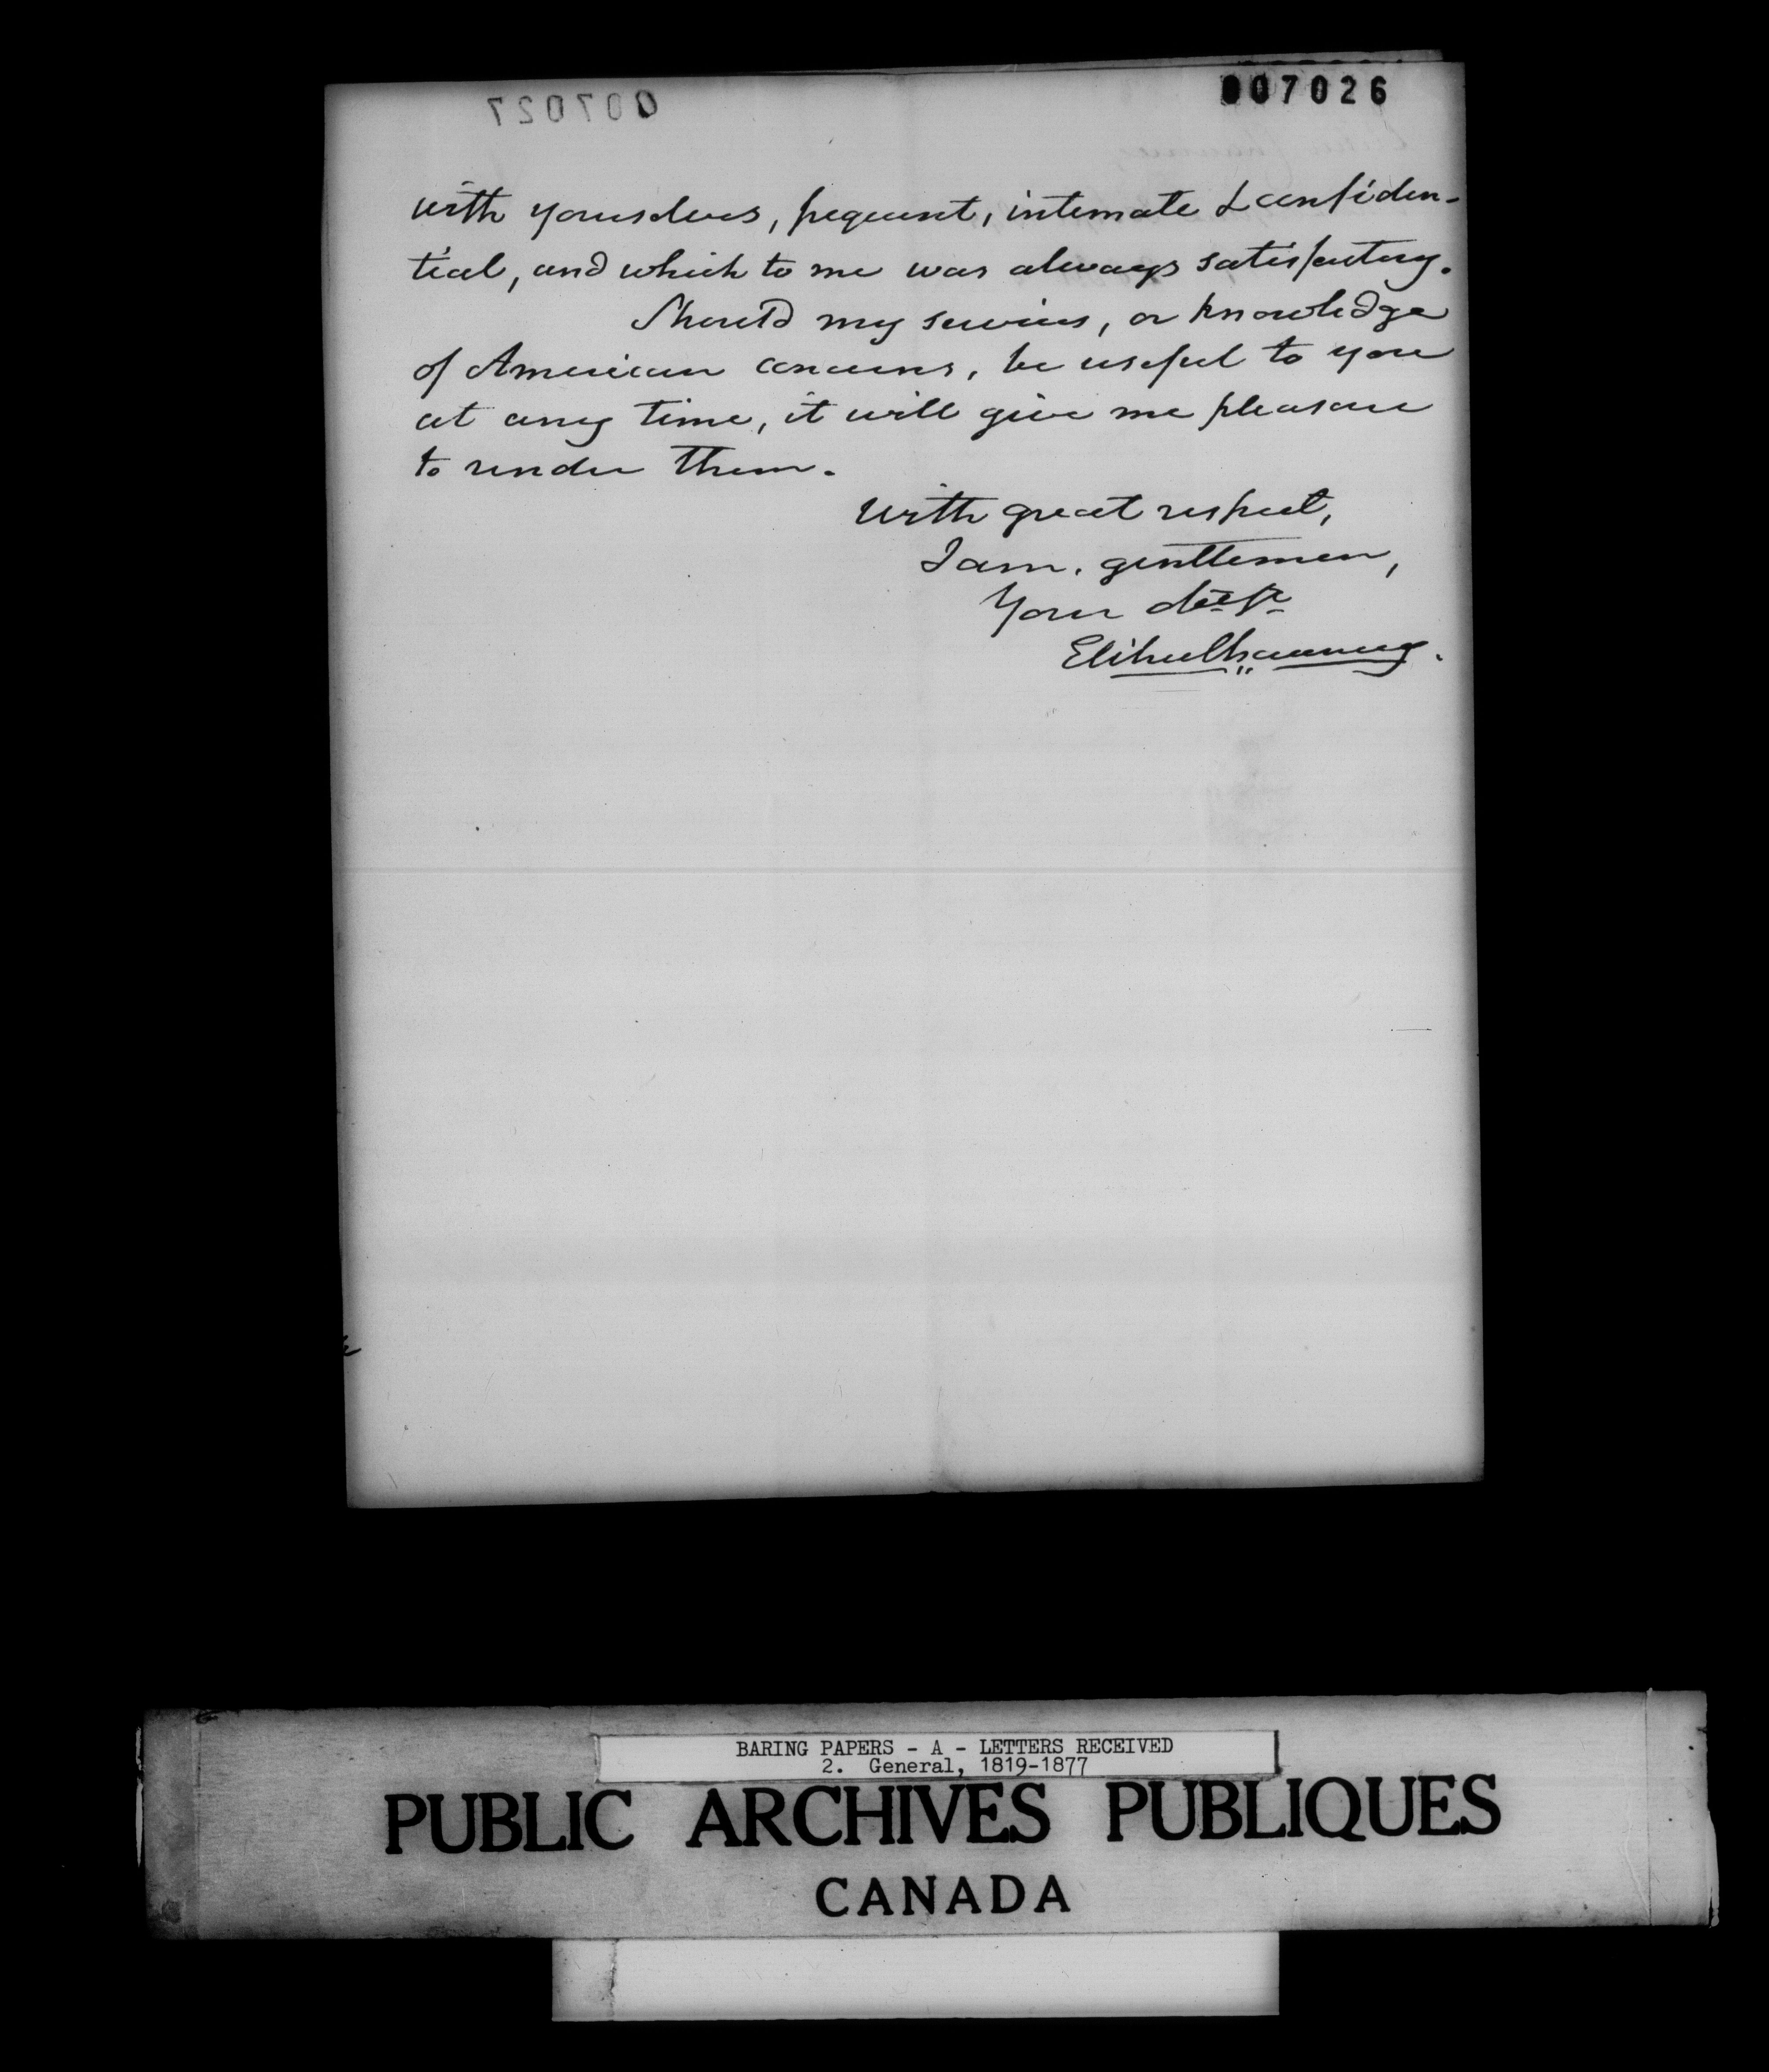 007027
007026
with yourselves, frequent, intimate & confiden-
tial, and which to me was always satisfactory.
Should my services, or knowledge
of American concerns, be useful to you
at any time, it will give me pleasure
to render them.
With great respect,
I am, gentlemen,
Your
Elihu Chauncey.
BARING PAPERS - A - LETTERS RECEIVED
2. General, 1819-1877
PUBLIC ARCHIVES PUBLIQUES
CANADA